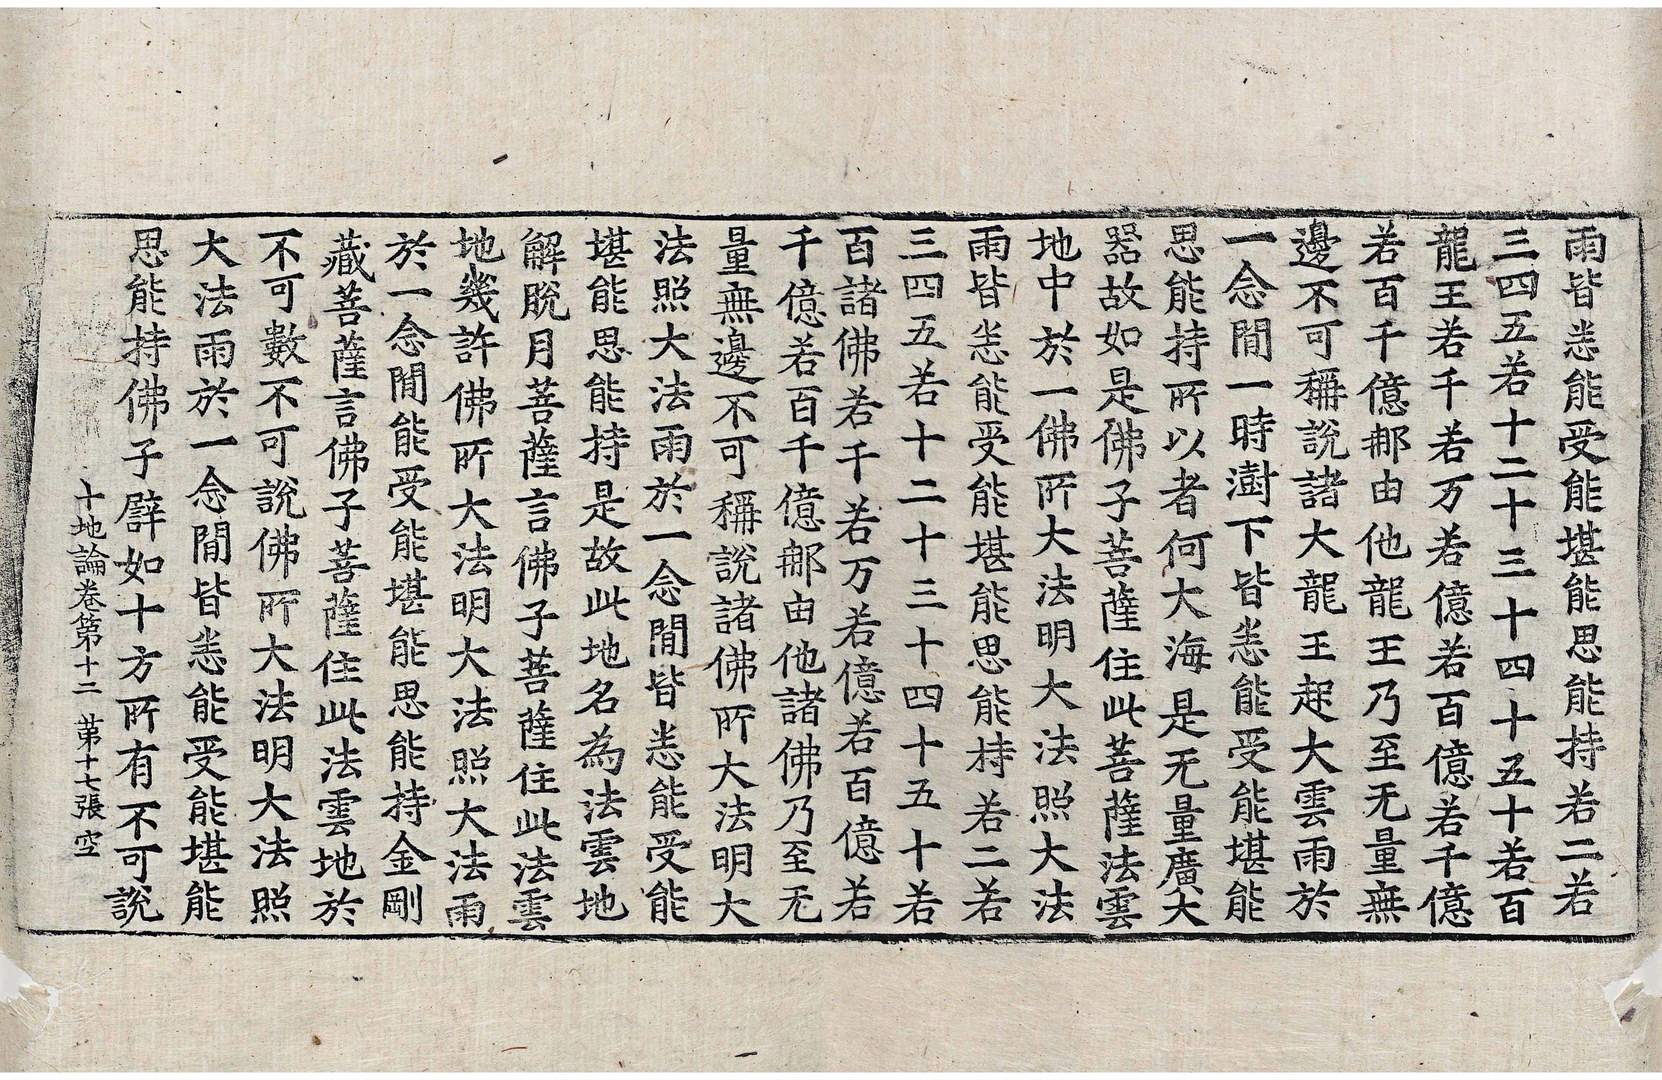 雨皆悉能受能堪能思能持若二若
三四五若十二十三十四十五十若百
龍王若千若万若億若百億若千億
若百千億那由他龍王乃至无量無
邊不可稱說諸大龍王起大雲雨於
一念間一時澍下皆悉能受能堪能
思能持所以者何大海是无量廣大
器故如是佛子菩薩住此菩薩法雲
地中於一佛所大法明大法照大法
雨皆悉能受能堪能思能持若二若
三四五若十二十三十四十五十若
百諸佛若千若万若億若百億若
千億若百千億那由他諸佛乃至无
量無邊不可稱說諸佛所大法明大
法照大法雨於一念間皆悉能受能
堪能思能持是故此地名為法雲地
解脫月菩薩言佛子菩薩住此法雲
地幾許佛所大法明大法照大法雨
於一念間能受能堪能思能持金剛
藏菩薩言佛子菩薩住此法雲地於
不可數不可說佛所大法明大法照
大法雨於一念間皆悉能受能堪能
思能持佛子譬如十方所有不可說
十地論卷第十二 苐十七張 空